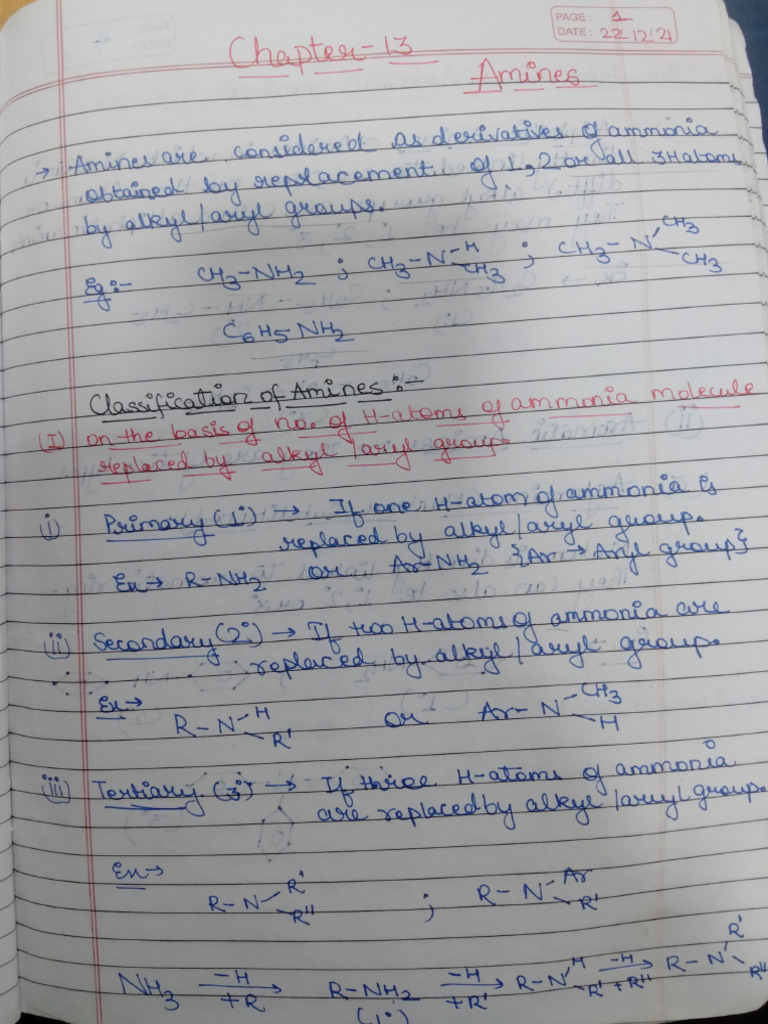 PAGE: 1
DATE: 22/12/21
Chapter-13
Amines
→ Amines are considered as derivatives of ammonia
obtained by replacement of 1, 2 or all 3H atoms
by alkyl/aryl groups.
Eg:- CH3-NH2 ; CH3-N-H CH3 ; CH3-N CH3 CH3
C6H5NH2
Classification of Amines :-
(I) on the basis of no. of H-atoms of ammonia molecule
replaced by alkyl/aryl group.
i) Primary (1°) → If one H-atom of ammonia is
replaced by alkyl/aryl group.
Ex→ R-NH2 or Ar-NH2 {Ar→Aryl group}
ii) Secondary (2°) → If two H-atoms of ammonia are
replaced by alkyl/aryl group.
Ex→ R-N-H R' or Ar-N-CH3 H
iii) Tertiary (3°) → If three H-atoms of ammonia
are replaced by alkyl/aryl group.
Ex→ R-N-R' R'' ; R-N-Ar R'
NH3 -H +R R-NH2 -H +R' R-N H R' -H +R'' R-N R' R''
(1°)